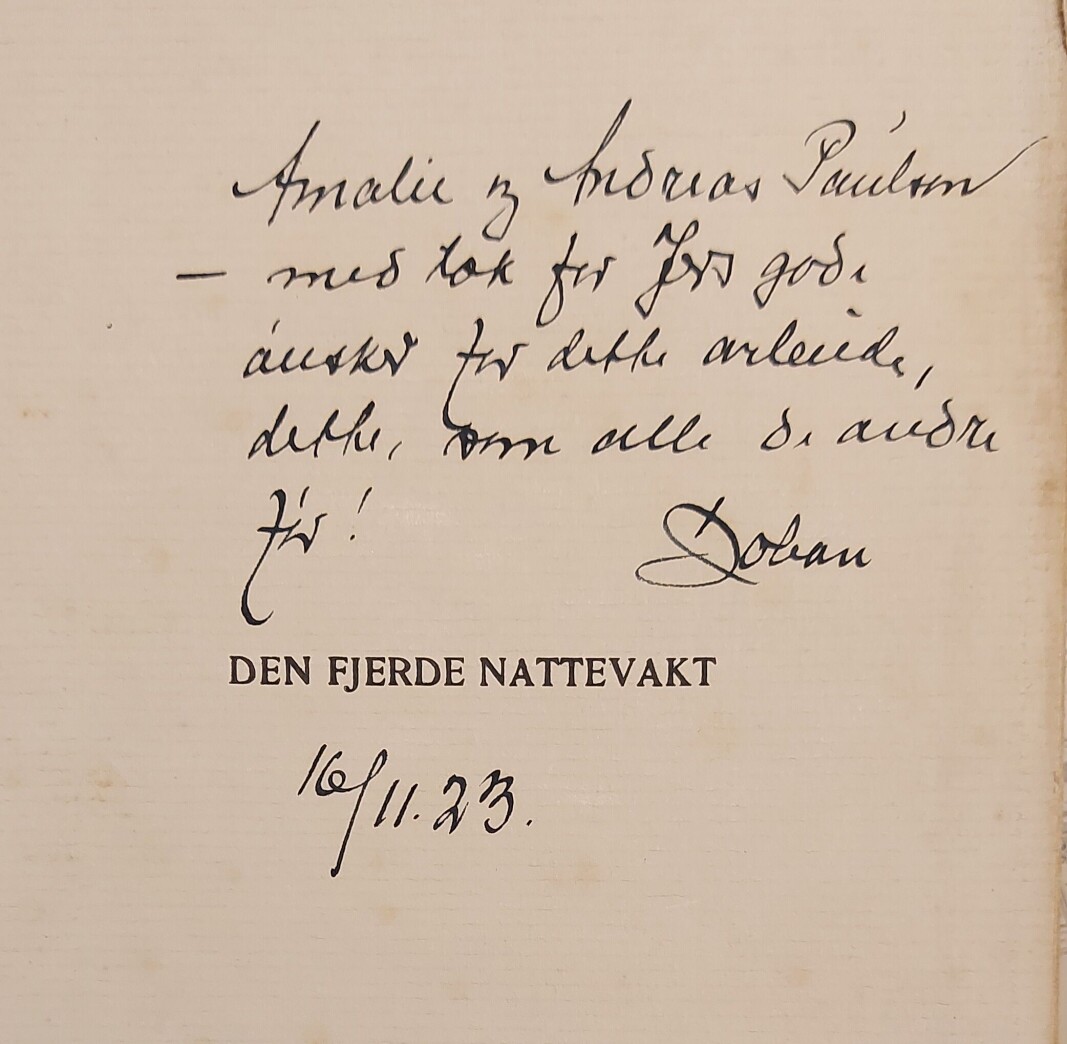 Amalie og Andreas Paulson
– med takk for Jers gode
ønsker for dette arbeide,
dette, som alle de andre
før!
Johan
DEN FJERDE NATTEVAKT
16/11.23.